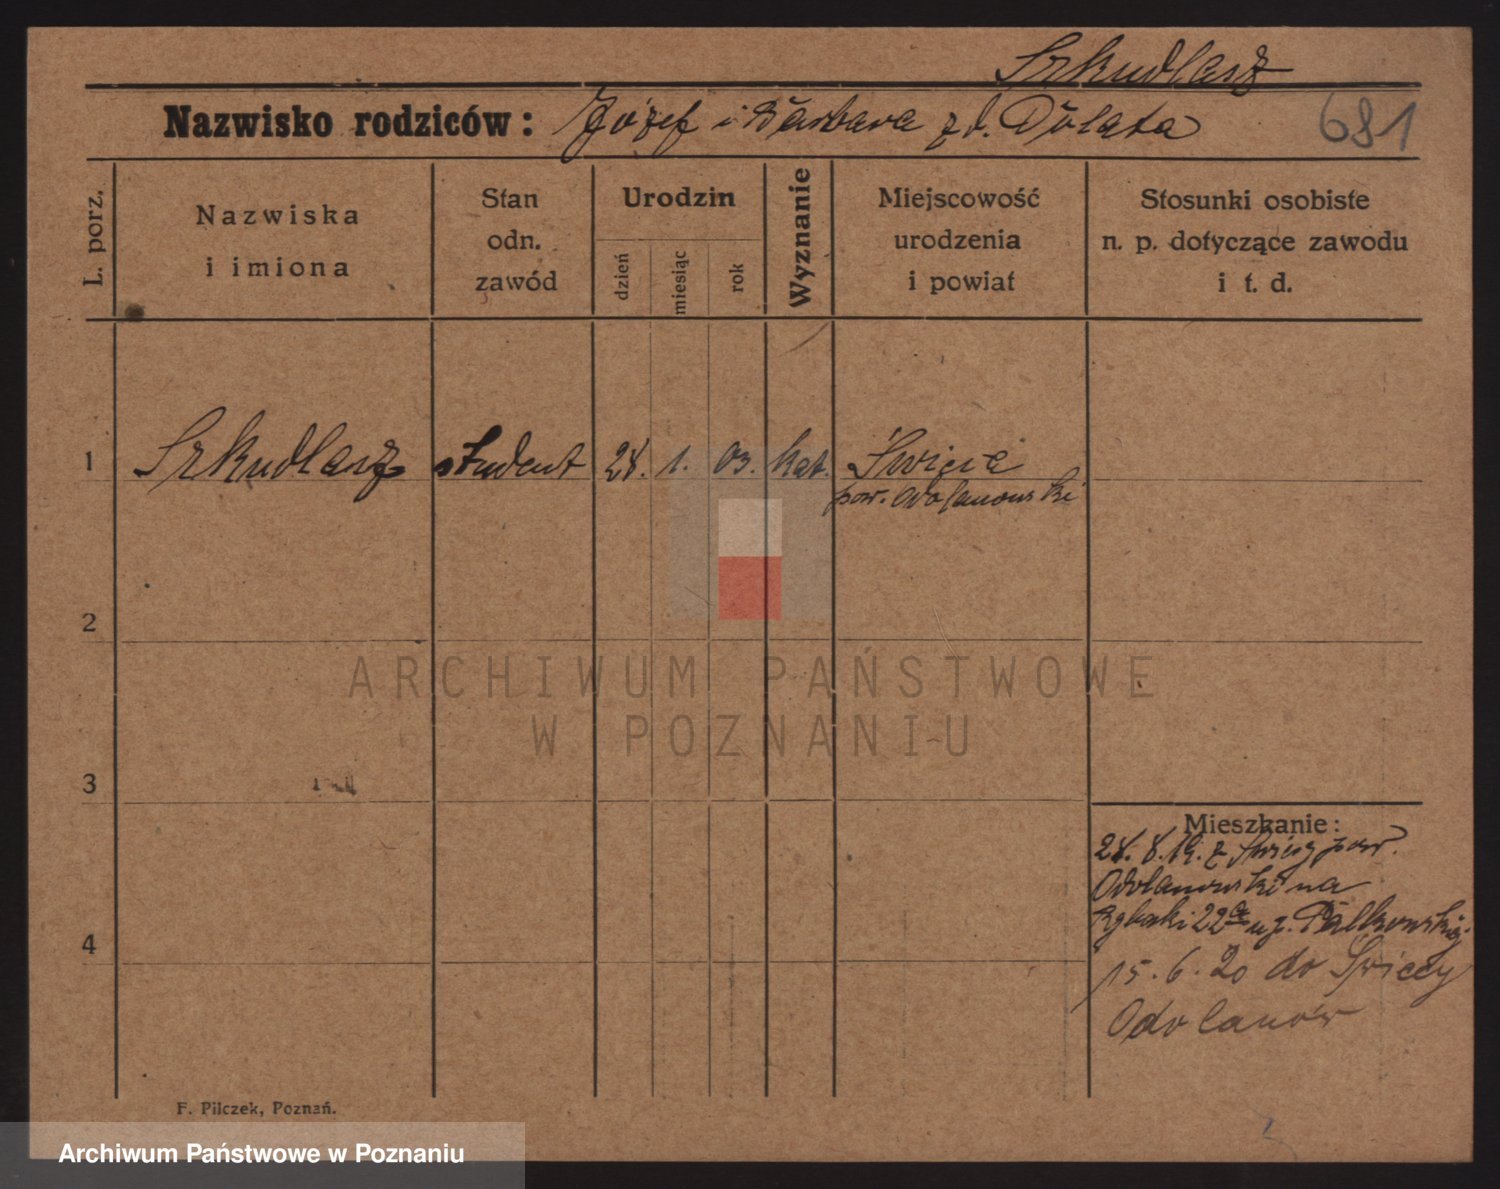 Szkudlarz
Nazwisko rodziców: Józef i Barbara z d. Dolata
681
L. porz.
Nazwiska
i imiona
Stan
odn.
zawód
Urodzin
dzień
miesiąc
rok
Wyznanie
Miejscowość
urodzenia
i powiat
Stosunki osobiste
n. p. dotyczące zawodu
i t. d.
1 Szkudlarz student 28. 1. 03. kat. Świeca
pow. Odolanowski
2
3
4
Mieszkanie:
28. 8. 19. z Świecy pow.
Odolanowski na
Rybaki 22 u p. Palkowskiej.
15. 6. 20 do Świecy
Odolanów
F. Pilczek, Poznań.
ARCHIWUM PAŃSTWOWE
W POZNANIU
Archiwum Państwowe w Poznaniu